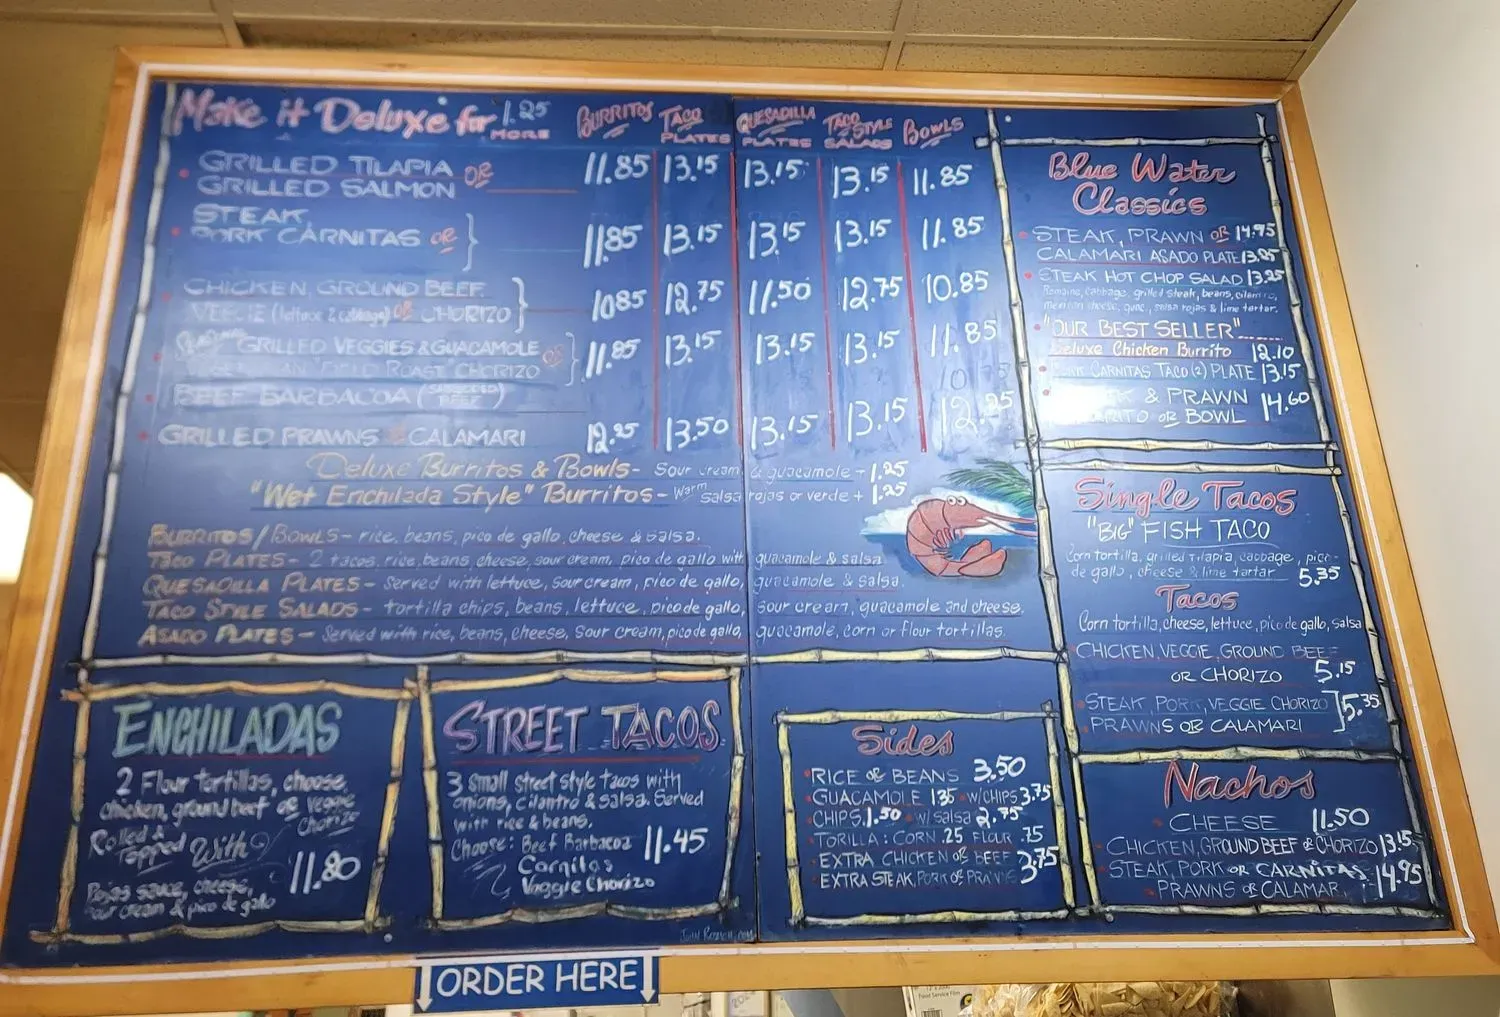 Make it Deluxe for 1.25 MORE
BURRITOS TACO PLATES QUESADILLA PLATES TACO STYLE SALADS BOWLS
GRILLED TILAPIA OR
GRILLED SALMON 11.85 13.15 13.15 13.15 11.85
STEAK,
PORK CARNITAS OR 11.85 13.15 13.15 13.15 11.85
CHICKEN, GROUND BEEF
VEGGIE (lettuce & cabbage) OR CHORIZO 10.85 12.75 11.50 12.75 10.85
GRILLED VEGGIES & GUACAMOLE OR 11.85 13.15 13.15 13.15 11.85
ROAST CHORIZO
BEEF BARBACOA (SHREDDED BEEF)
GRILLED PRAWNS CALAMARI 12.95 13.50 13.15 13.15 12.95
Deluxe Burritos & Bowls- Sour cream & guacamole - 1.25
"Wet Enchilada Style" Burritos- Warm salsa rojas or verde + 1.25
BURRITOS/BOWLS- rice, beans, pico de gallo, cheese & salsa.
TACO PLATES- 2 tacos, rice, beans, cheese, sour cream, pico de gallo with guacamole & salsa
QUESADILLA PLATES- Served with lettuce, sour cream, pico de gallo, guacamole & salsa.
TACO STYLE SALADS- tortilla chips, beans, lettuce, pico de gallo, sour cream, guacamole and cheese.
ASADO PLATES- Served with rice, beans, cheese, sour cream, pico de gallo, guacamole, corn or flour tortillas.
ENCHILADAS
2 Flour tortillas, choose,
chicken, ground beef or veggie
chorizo
Rolled &
Topped With
Rojas sauce, cheese, 11.80
sour cream & pico de gallo
STREET TACOS
3 small street style tacos with
onions, cilantro & salsa. Served
with rice & beans.
Choose: Beef Barbacoa 11.45
Carnitas
Veggie Chorizo
Sides
RICE OR BEANS 3.50
GUACAMOLE 1.35 W/CHIPS 3.75
CHIPS 1.50 W/ salsa 2.75
TORILLA: CORN .25 FLOUR .75
EXTRA CHICKEN OR BEEF 3.75
EXTRA STEAK, PORK OR PRAWNS 3.75
Blue Water
Classics
STEAK, PRAWN OR 14.95
CALAMARI ASADO PLATE 13.25
STEAK HOT CHOP SALAD 13.25
Romaine, cabbage, grilled steak, beans, cilantro,
mexican cheese, guac, salsa rojas & lime tartar.
"OUR BEST SELLER"
Deluxe Chicken Burrito 12.10
CARNITAS TACO (2) PLATE 13.15
& PRAWN 14.60
OR BOWL
Single Tacos
"BIG" FISH TACO
Corn tortilla, grilled tilapia, cabbage, pico-
de gallo, cheese & lime tartar 5.35
Tacos
Corn tortilla, cheese, lettuce, pico de gallo, salsa
CHICKEN, VEGGIE, GROUND BEEF
OR CHORIZO 5.15
STEAK, PORK, VEGGIE CHORIZO 5.35
PRAWNS OR CALAMARI
Nachos
CHEESE 11.50
CHICKEN, GROUND BEEF OR CHORIZO 13.15
STEAK, PORK OR CARNITAS 14.95
PRAWNS OR CALAMARI
ORDER HERE